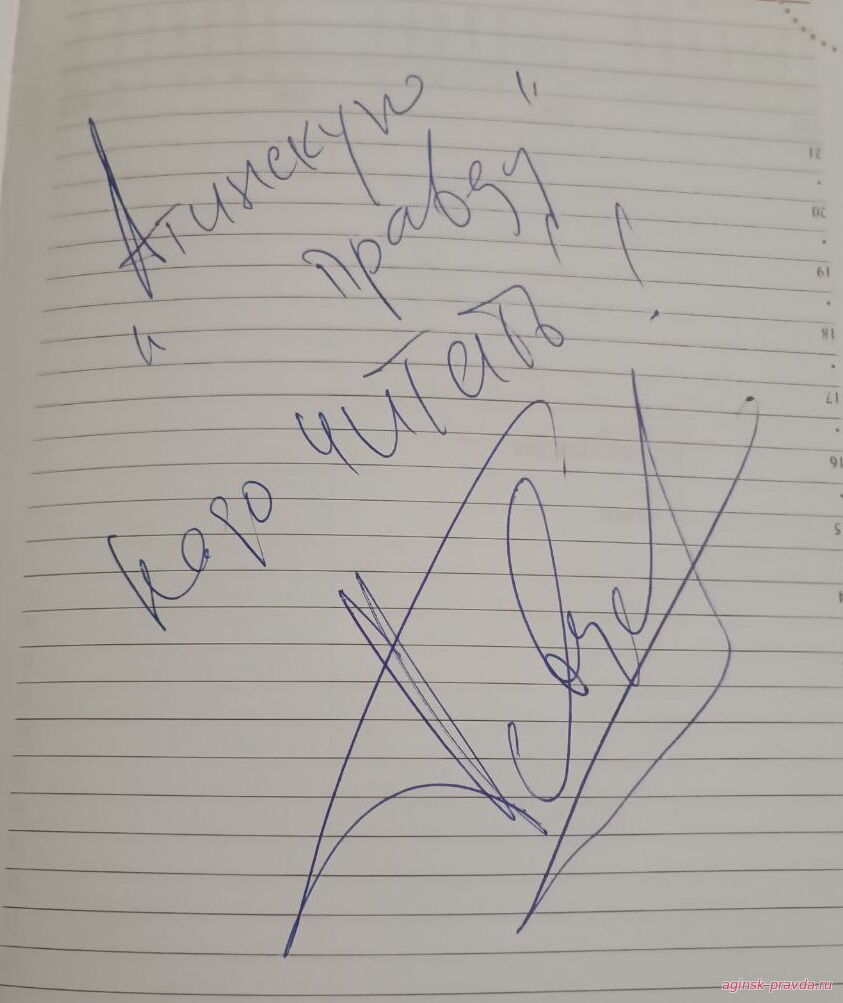 Агинскую "
" правду
надо читать!
21
20
19
18
17
16
aginsk-pravda.ru